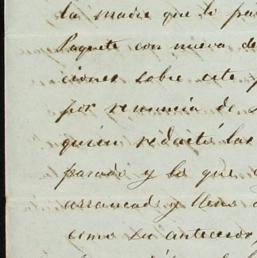 la madre que lo pa
Paquete con nueva de
ciones sobre este p
por renuncia de
quien redactó las
pasado y lo que
arrancado y lleno
como su antecesor